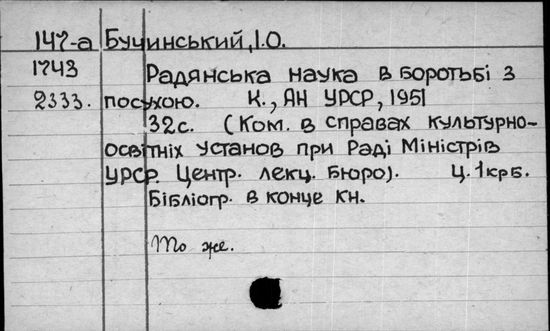 147-а Бучинський, І.О.
1743 Радянська наука в боротьбі з
2333. посухою. К., АН УРСР, 1951
32с. (Ком. в справах культурно-
освітніх установ при Раді Міністрів
УРСР. Центр. лекц. бюро). Ц. 1крб.
Бібліогр. в конце кн.
То же.